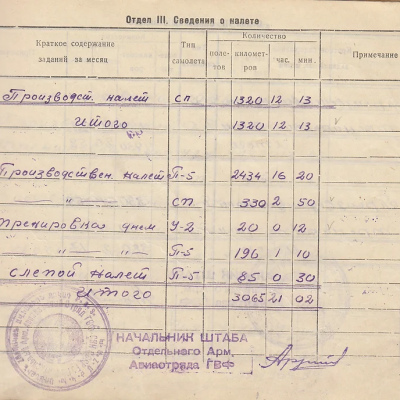 Отдел III. Сведения о налете
Краткое содержание заданий за месяц
Тип самолета
Количество
Примечание
полетов
километров
час.
мин.
Производст. налет СП 1320 12 13
Итого 1320 12 13
Производствен. налет П-5 2434 16 20
—„— —„— СП 330 2 50
Тренировка днем У-2 20 0 12
—„— —„— П-5 196 1 10
Слепой налет П-5 85 0 30
Итого 3065 21 02
НАЧАЛЬНИК ШТАБА
Отдельного Арм.
Авиаотряда ГВФ